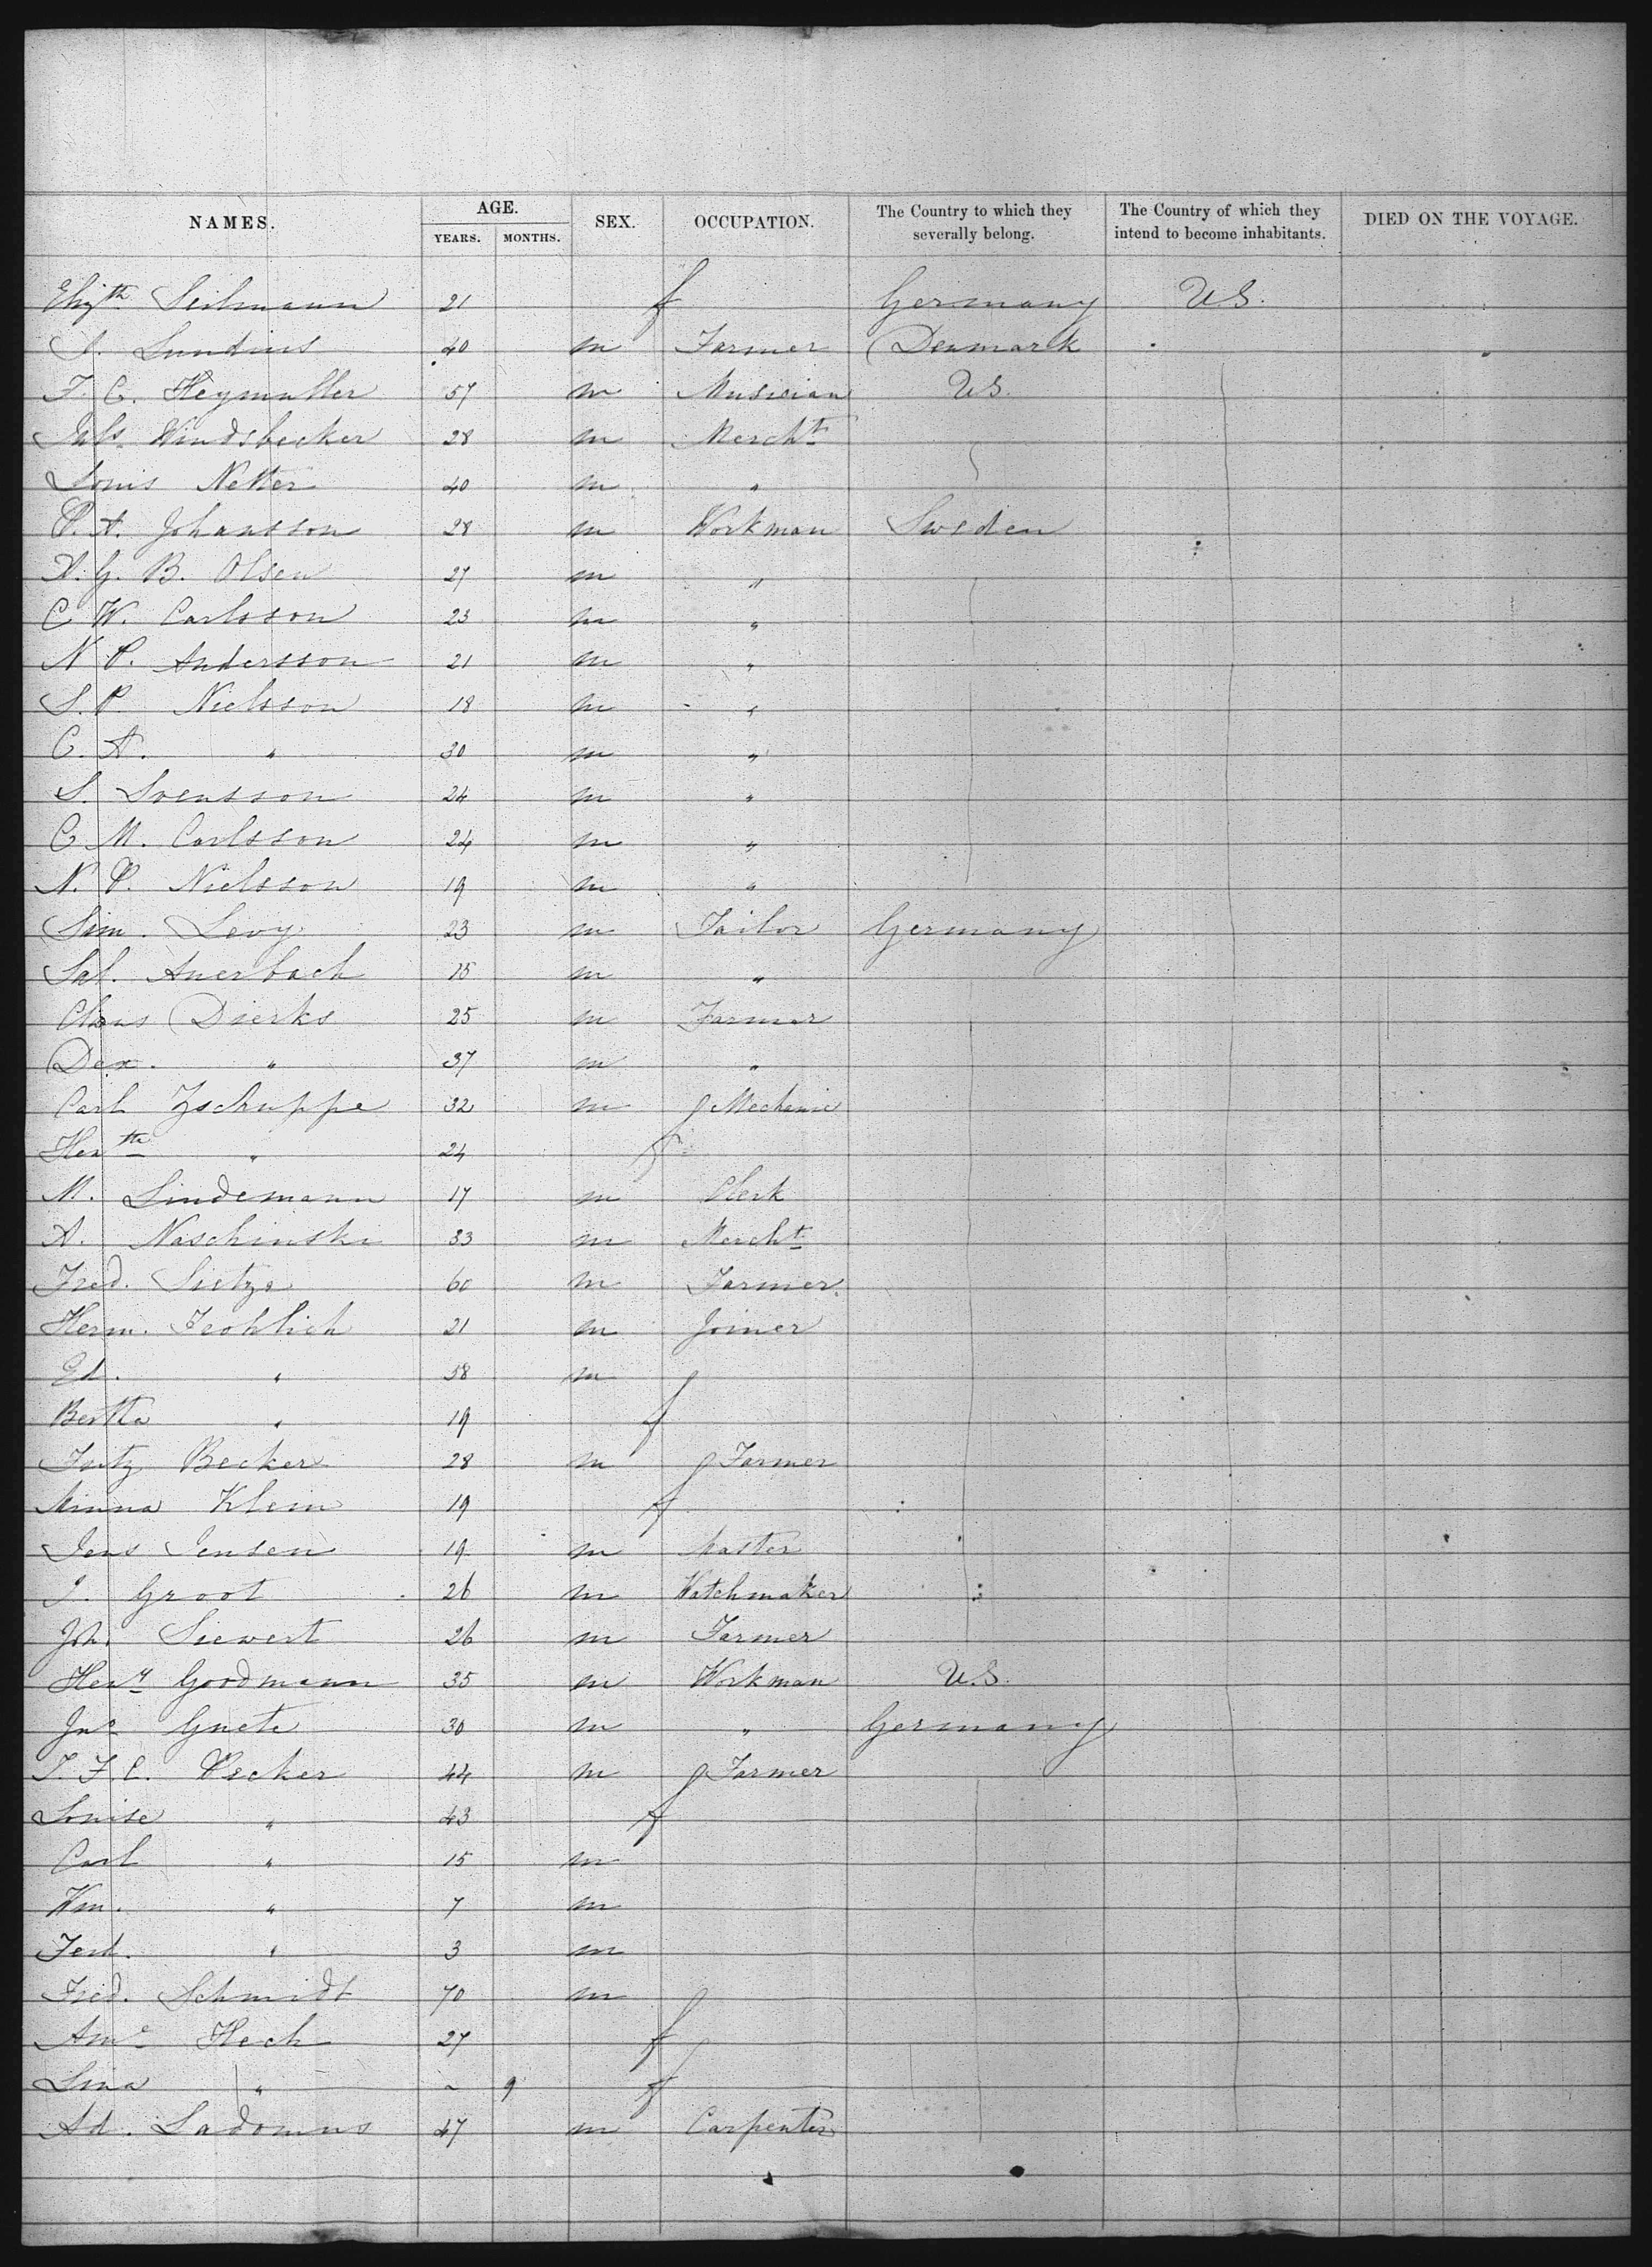 NAMES. AGE. SEX. OCCUPATION. The Country to which they severally belong. The Country of which they intend to become inhabitants. DIED ON THE VOYAGE.
YEARS. MONTHS.
Elizth Seilmann 21 f Germany US.
J. Lundius 40 m Farmer Denmark
F. C. Heymuller 57 m Musician US.
Juls. Windsbecker 28 m Mercht
Louis Netter 40 m "
P. A. Johansson 28 m Workman Sweden
H. G. B. Olsen 27 m "
C. W. Carlsson 23 m "
N. P. Andersson 21 m "
S. P. Nielsson 18 m "
C. A. " 30 m "
S. Svensson 24 m "
C. M. Carlsson 24 m "
N. P. Nielsson 19 m "
Sim. Levy 23 m Tailor Germany
Sal. Auerbach 15 m "
Claus Dierks 25 m Farmer
" 37 m "
Carl Zschuppe 32 m Mechanic
" 24 f
M. Lindemann 17 m Clerk
A. Naschinski 33 m Mercht
Fred. Sietze 60 m Farmer.
Herm. Frohlich 21 m Joiner
Ed. " 58 m
Bertha " 19 f
Fritz Becker 28 m Farmer
Minna Klein 19 f
Jens Jensen 19 m
J. Groot 26 m Watchmaker
Joh. Siewert 26 m Farmer
Heny Goodmann 35 m Workman U.S.
Jno Gnete 30 m " Germany
J. F. C. Pecker 44 m Farmer
Louise " 43 f
Carl " 15 m
Wm. " 7 m
Ferd. " 3 m
Fred. Schmidt 70 m
Ame Hech 27 f
Lina " ~ 9 f
Ad. Ladomus 47 m Carpenter